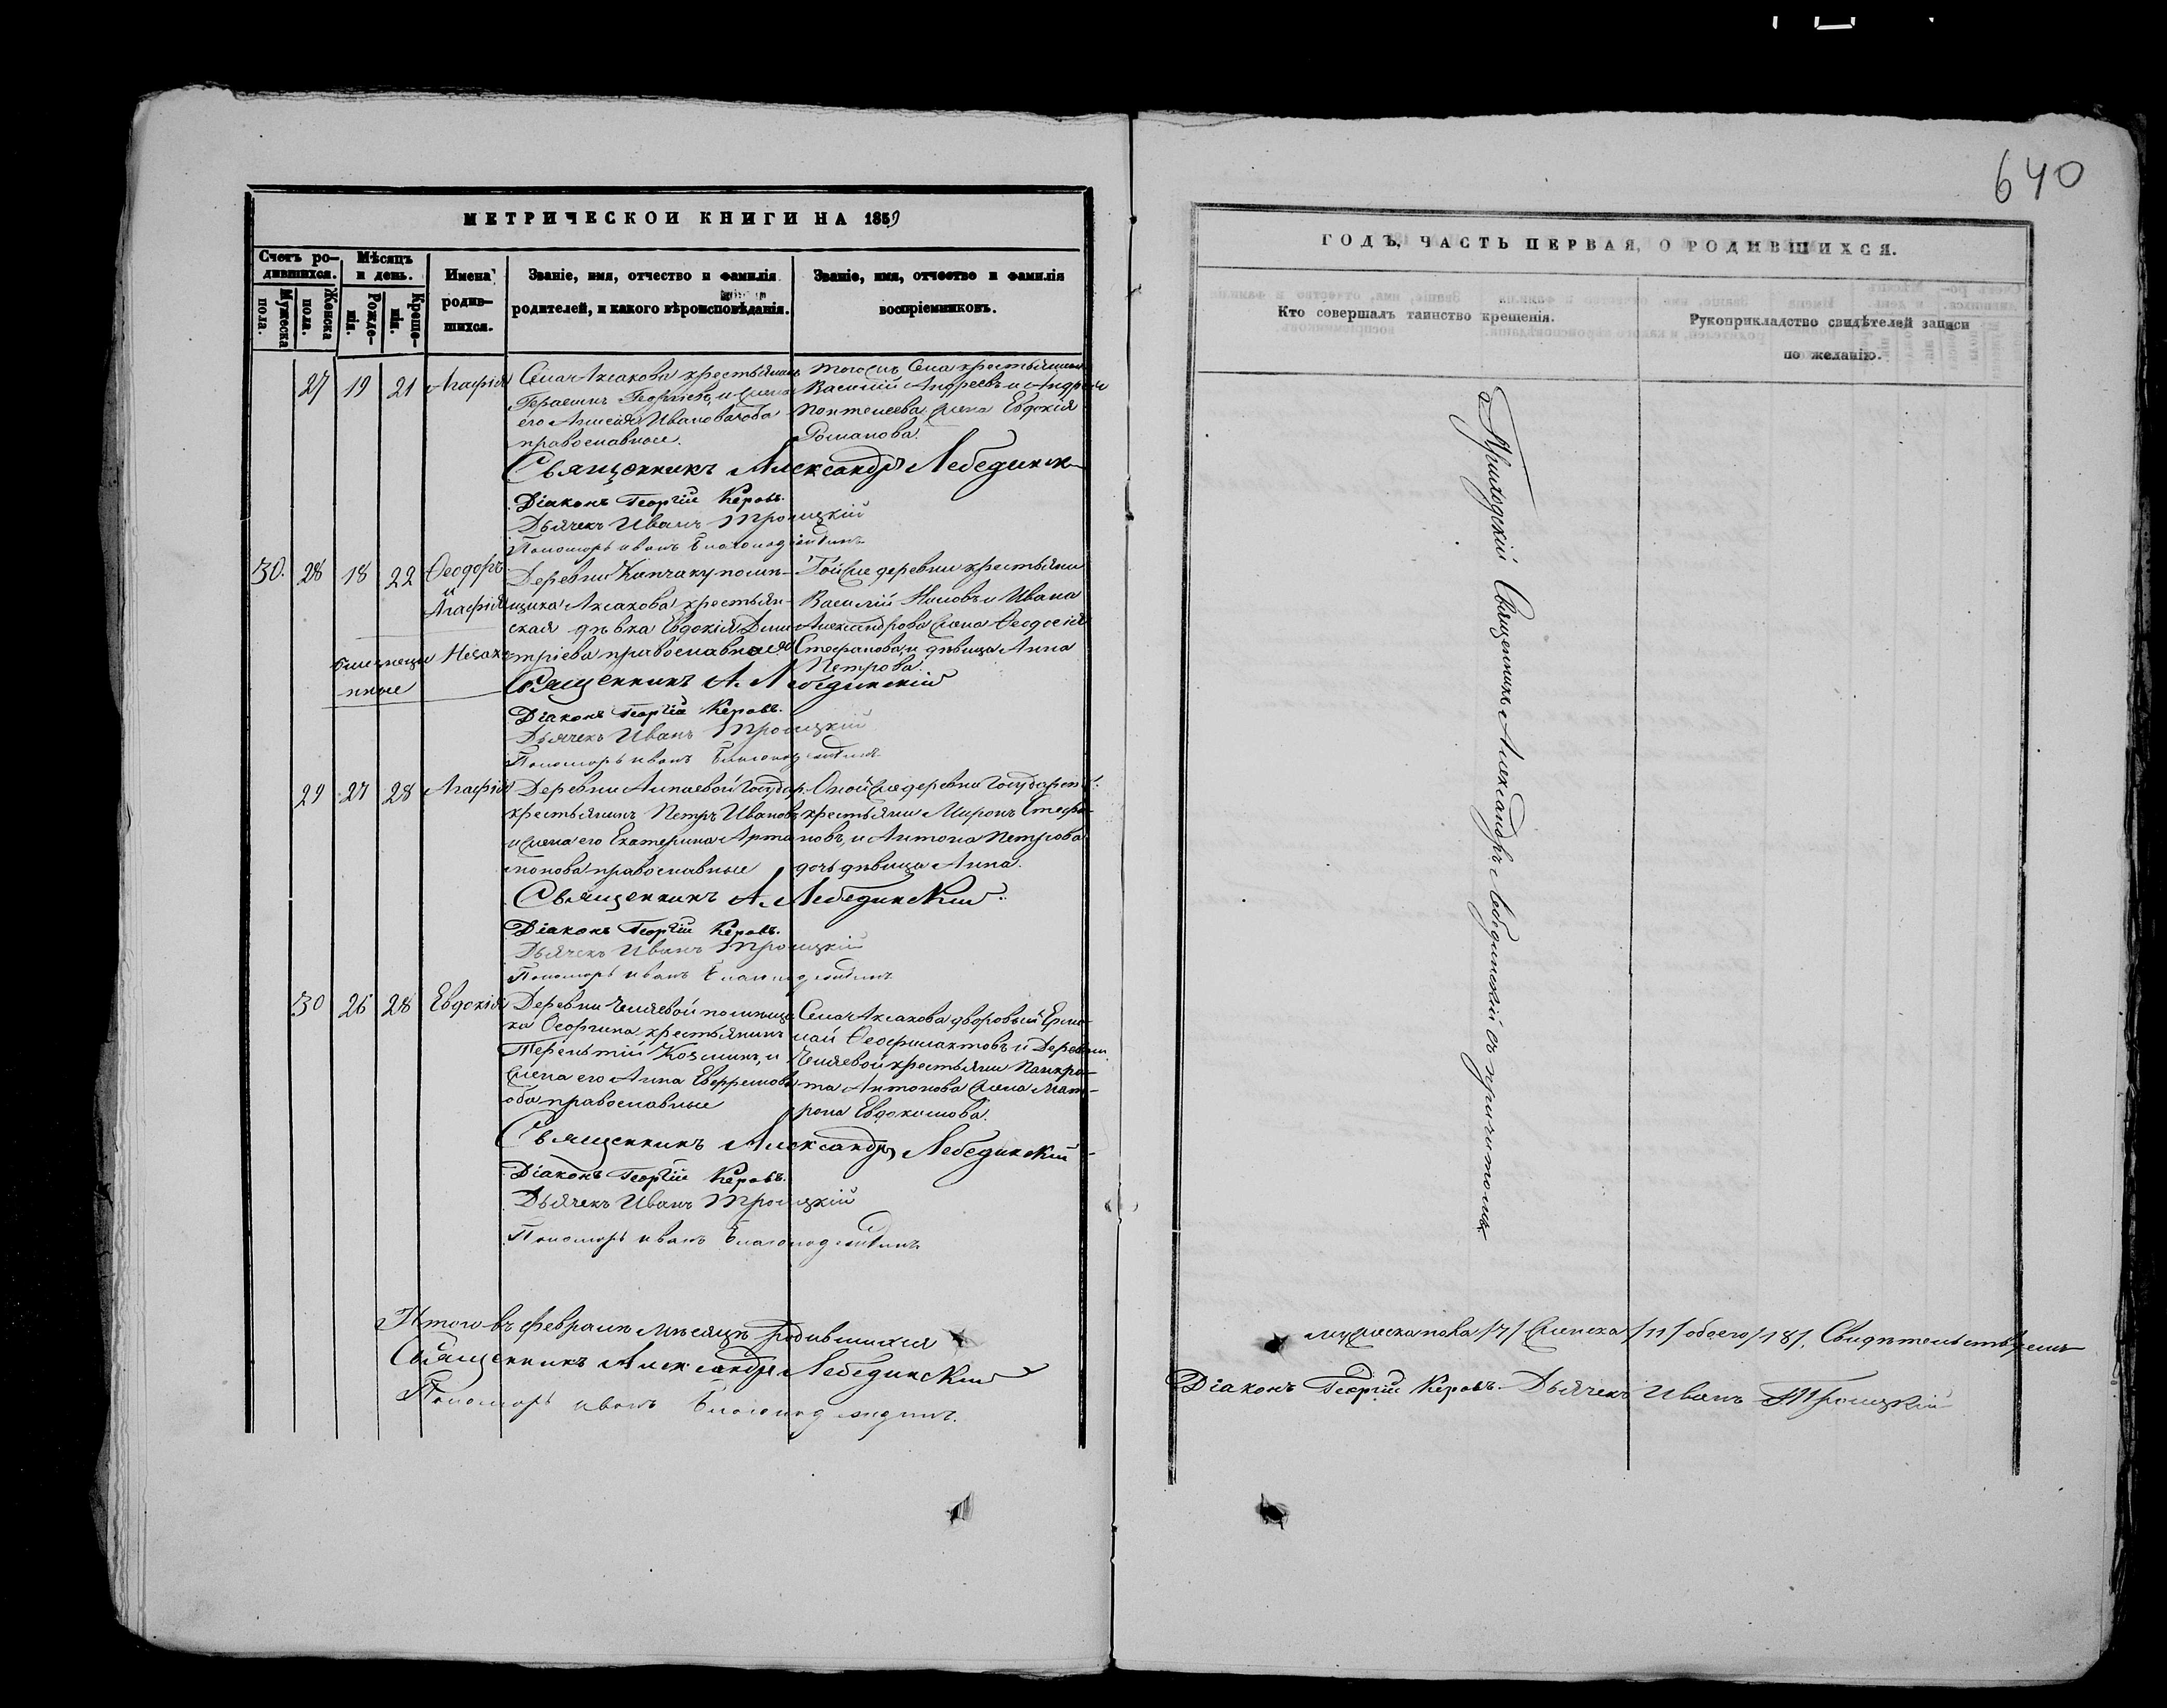 640
МЕТРИЧЕСКОЙ КНИГИ НА 1859
Счетъ родившихся.
Мужеска пола.
Женска пола.
Мѣсяцъ и день.
Рожденія.
Крещенія.
Имена родившихся.
Званіе, имя, отчество и фамилія
родителей, и какого вѣроисповѣданія.
Званіе, имя, отчество и фамилія
воспріемниковъ.
27 19 21 Агафія
Села Аксакова крестьянинъ
Георгіевъ, и жена
его Ивановa оба
православные.
Тогожъ Села крестьянинъ
Василій Андреевъ и Андрея
жена Евдокія
Романова.
Священникъ Александръ Лебединск
Діаконъ Георгій Керовъ.
Дьячекъ Иванъ Троицкій
Пономарь Иванъ
30. 28 18 22 Ѳеодоръ
и
Агафія
близнецы незаконные
Деревни помѣ-
щика Аксакова крестьян-
ская дѣвка Евдокія Дими-
тріева православная
Той же деревни крестьяни
Василій и Ивана
Александрова жена Ѳеодосія
Стефанова, и дѣвица Анна
Петрова.
Священникъ А. Лебединскій
Діаконъ Георгій Керовъ.
Дьячекъ Иванъ Троицкій
Пономарь Иванъ
29 27 28 Агафія
Деревни Алпаевой Государ.
крестьянинъ Петръ Ивановъ
и жена его Екатерина Арта-
монова православные
Оной же деревни Государст.
крестьяни Миронъ Стефа-
новъ, и Антона Петрова
дочь дѣвица Анна.
Священникъ А. Лебединскій.
Діаконъ Георгій Керовъ.
Дьячекъ Иванъ Троицкій
Пономарь Иванъ
30 26 28 Евдокія
Деревни помѣщи-
ка Осоргина крестьянинъ
Терентій Козминъ, и
жена его Анна
оба православные
Села Аксакова дворовый Ермо-
лай Ѳеофилактовъ и Деревни
крестьяни Панкра-
та Антонова жена Мат-
рона Евдокимова.
Священникъ Александръ Лебединскій
Діаконъ Георгій Керовъ.
Дьячекъ Иванъ Троицкій
Пономарь Иванъ
Итого въ февралѣ мѣсяцѣ родившихся
Священникъ Александръ Лебединскій
Пономарь Иванъ
ГОДЪ, ЧАСТЬ ПЕРВАЯ, О РОДИВШИХСЯ.
Кто совершалъ таинство крещенія.
Рукоприкладство свидѣтелей записи
по желанію.
Приходскій Священникъ Александръ Лебединскій съ причитомъ
мужеска пола /7/ женска /11/ обоего /18/. Свидѣтельствуемъ
Діаконъ Георгій Керовъ. Дьячекъ Иванъ Троицкій